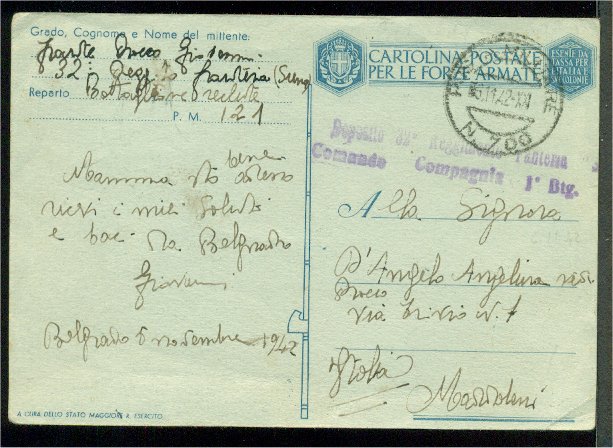 Grado, Cognome e Nome del mittente:
fante Greco Giovanni
32: Regg.to fanteria (Siena)
Reparto Battaglione reclute
P. M. 121
Mamma sto bene
ricevi i miei saluti
e baci da Belgrado
Giovanni
Belgrado 5 novembre 1942
A CURA DELLO STATO MAGGIORE R. ESERCITO
CARTOLINA POSTALE
PER LE FORZE ARMATE
ESENTE DA
TASSA PER
L'ITALIA E
COLONIE
POSTA MILITARE
11.42-XXI
N. 700
Deposito 32° Reggimento Fanteria
Comando Compagnia 1° Btg.
Alla Signora
D'Angelo Angelina ved.
Greco
via N. 1
Italia